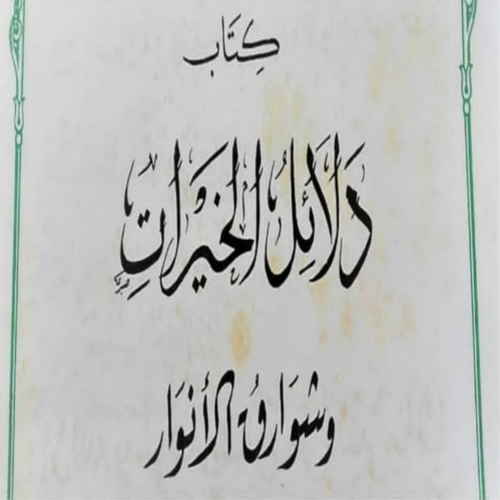 كِتَاب
دَلَائِلُ الخَيْرَاتِ
وَشَوَارِقُ الأَنْوَار